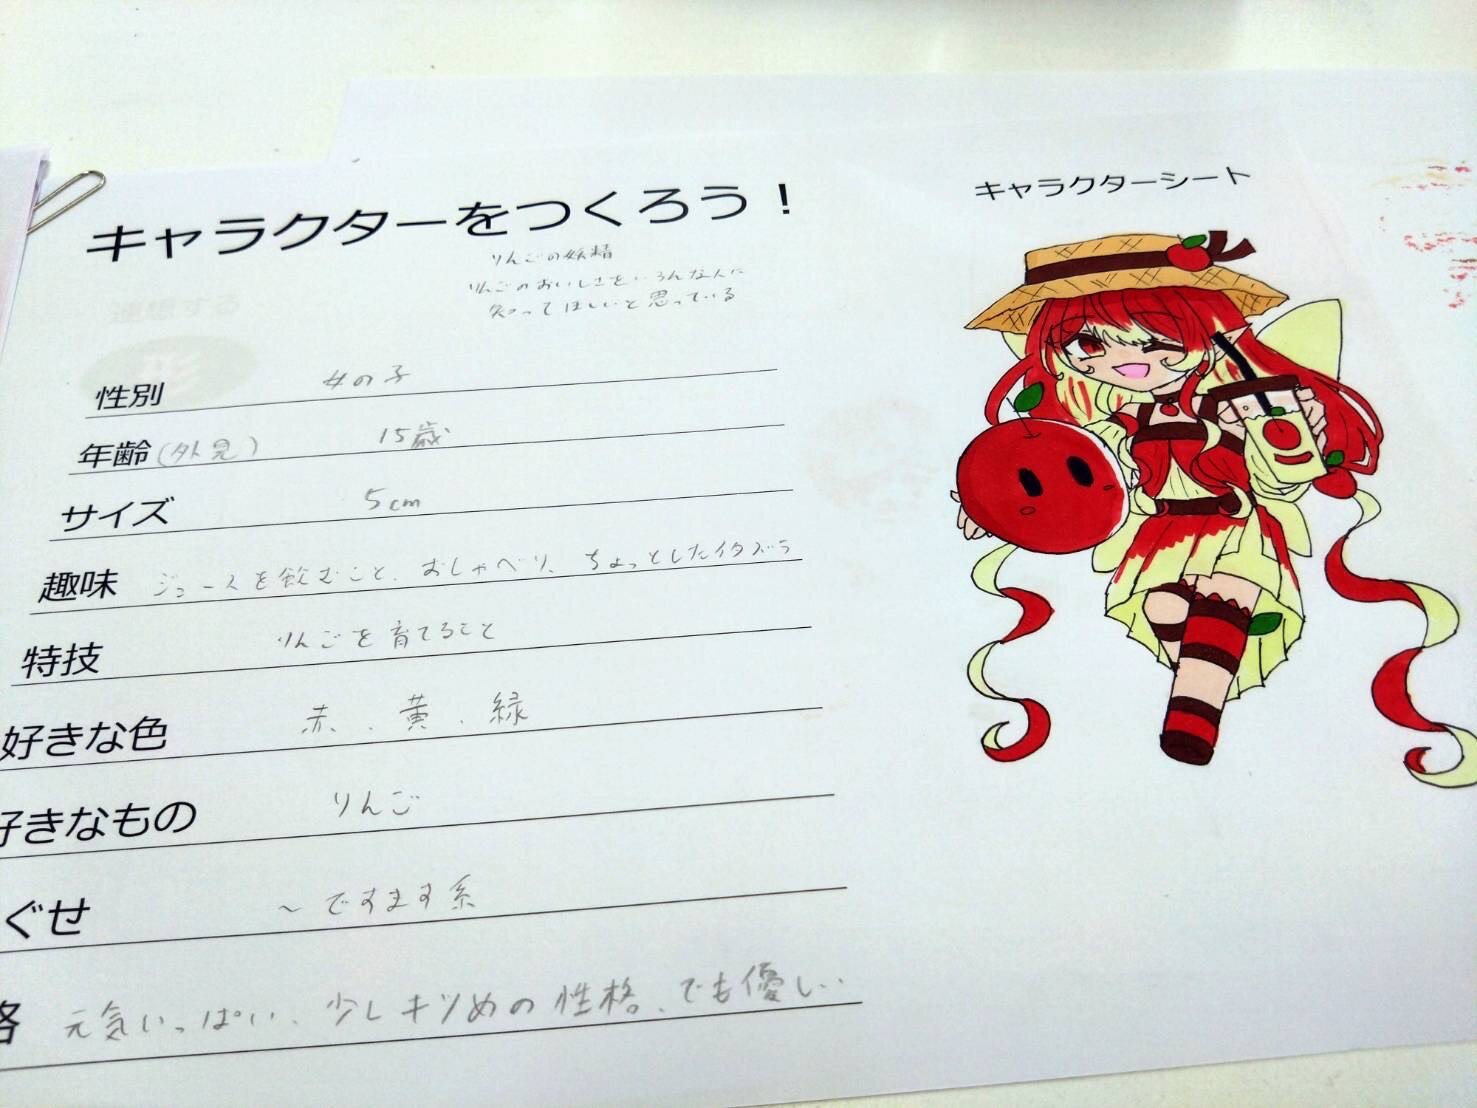 キャラクターをつくろう！
りんごの妖精
りんごのおいしさをいろんな人に
知ってほしいと思っている
連想する
形
性別 女の子
年齢(外見) 15歳
サイズ 5cm
趣味 ジュースを飲むこと、おしゃべり、ちょっとしたイタズラ
特技 りんごを育てること
好きな色 赤、黄、緑
好きなもの りんご
ぐせ ～ですます系
格 元気いっぱい、少しキツめの性格。でも優しい
キャラクターシート